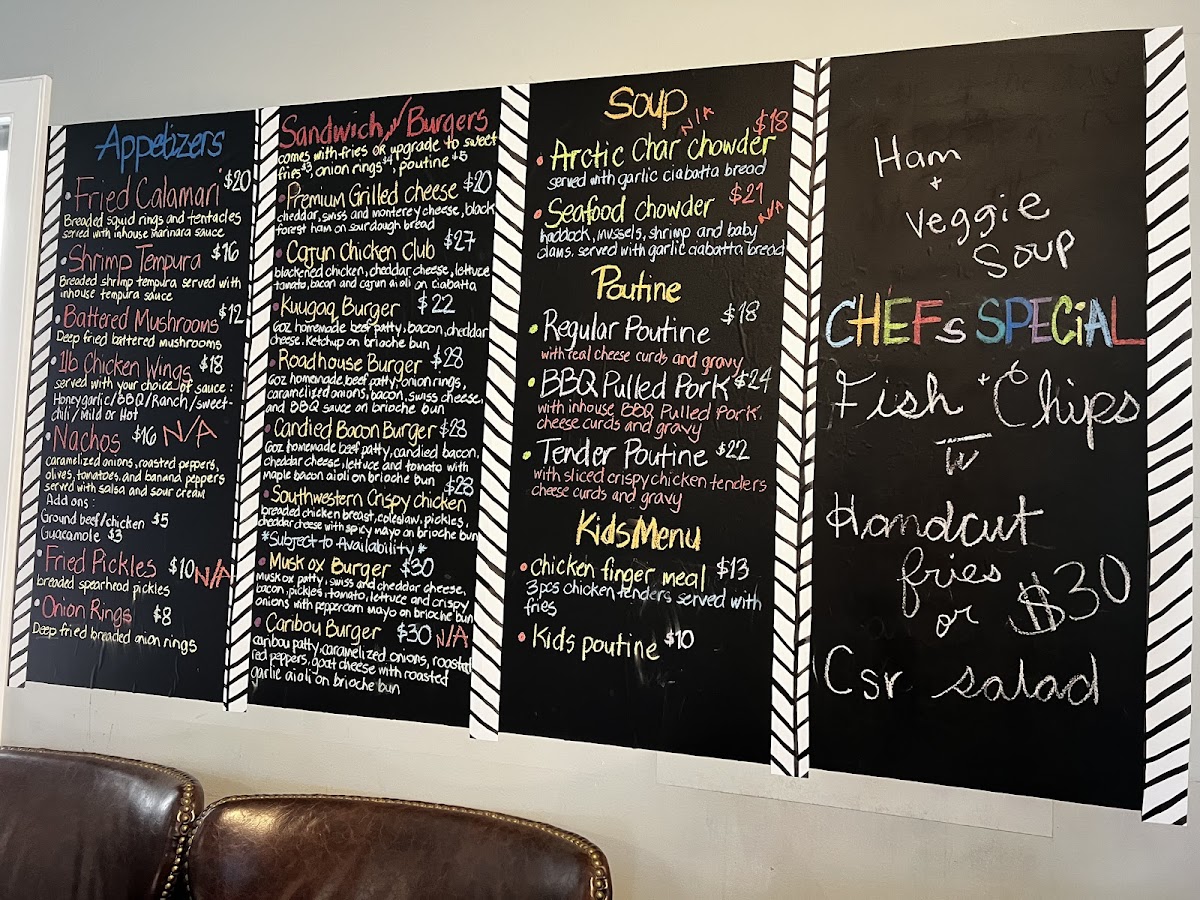 Appetizers
• Fried Calamari $20
Breaded squid rings and tentacles
served with inhouse marinara sauce
• Shrimp Tempura $16
Breaded shrimp tempura served with
inhouse tempura sauce
• Battered Mushrooms $12
Deep fried battered mushrooms
• 1lb Chicken Wings $18
served with your choice of sauce:
Honeygarlic/BBQ/Ranch/sweet-
chili/Mild or Hot
• Nachos $16 N/A
caramelized onions, roasted peppers,
olives, tomatoes, and banana peppers
served with salsa and sour cream
Add ons:
Ground beef/chicken $5
Guacamole $3
• Fried Pickles $10 N/A
breaded spearhead pickles
• Onion Rings $8
Deep fried breaded onion rings
Sandwich/Burgers
comes with fries or upgrade to sweet
fries $3, onion rings $4, poutine $5
• Premium Grilled cheese $20
cheddar, swiss and monterey cheese, black
forest ham on sourdough bread
• Cajun Chicken Club $27
blackened chicken, cheddar cheese, lettuce
tomato, bacon and cajun aioli on ciabatta
• Kuugaq Burger $22
6oz homemade beef patty, bacon, cheddar
cheese, ketchup on brioche bun
• Roadhouse Burger $28
6oz homemade beef patty, onion rings,
caramelized onions, bacon, swiss cheese,
and BBQ sauce on brioche bun
• Candied Bacon Burger $28
6oz homemade beef patty, candied bacon,
cheddar cheese, lettuce and tomato with
maple bacon aioli on brioche bun
• Southwestern Crispy chicken $28
breaded chicken breast, coleslaw, pickles,
cheddar cheese with spicy mayo on brioche bun
*Subject to Availability*
• Muskox Burger $30
Muskox patty, swiss and cheddar cheese,
bacon, pickles, tomato, lettuce and crispy
onions with peppercorn mayo on brioche bun
• Caribou Burger $30 N/A
caribou patty, caramelized onions, roasted
red peppers, goat cheese with roasted
garlic aioli on brioche bun
Soup
• Arctic Char chowder N/A $18
served with garlic ciabatta bread
• Seafood chowder $21 N/A
haddock, mussels, shrimp and baby
clams. served with garlic ciabatta bread
Poutine
• Regular Poutine $18
with real cheese curds and gravy
• BBQ Pulled Pork $24
with inhouse BBQ Pulled Pork.
cheese curds and gravy
• Tender Poutine $22
with sliced crispy chicken tenders
cheese curds and gravy
Kids Menu
• chicken finger meal $13
3pcs chicken tenders served with
fries
• Kids poutine $10
Ham
+
Veggie
Soup
CHEFs SPECiAL
Fish + Chips
w
Handcut
fries
or $30
Csr salad